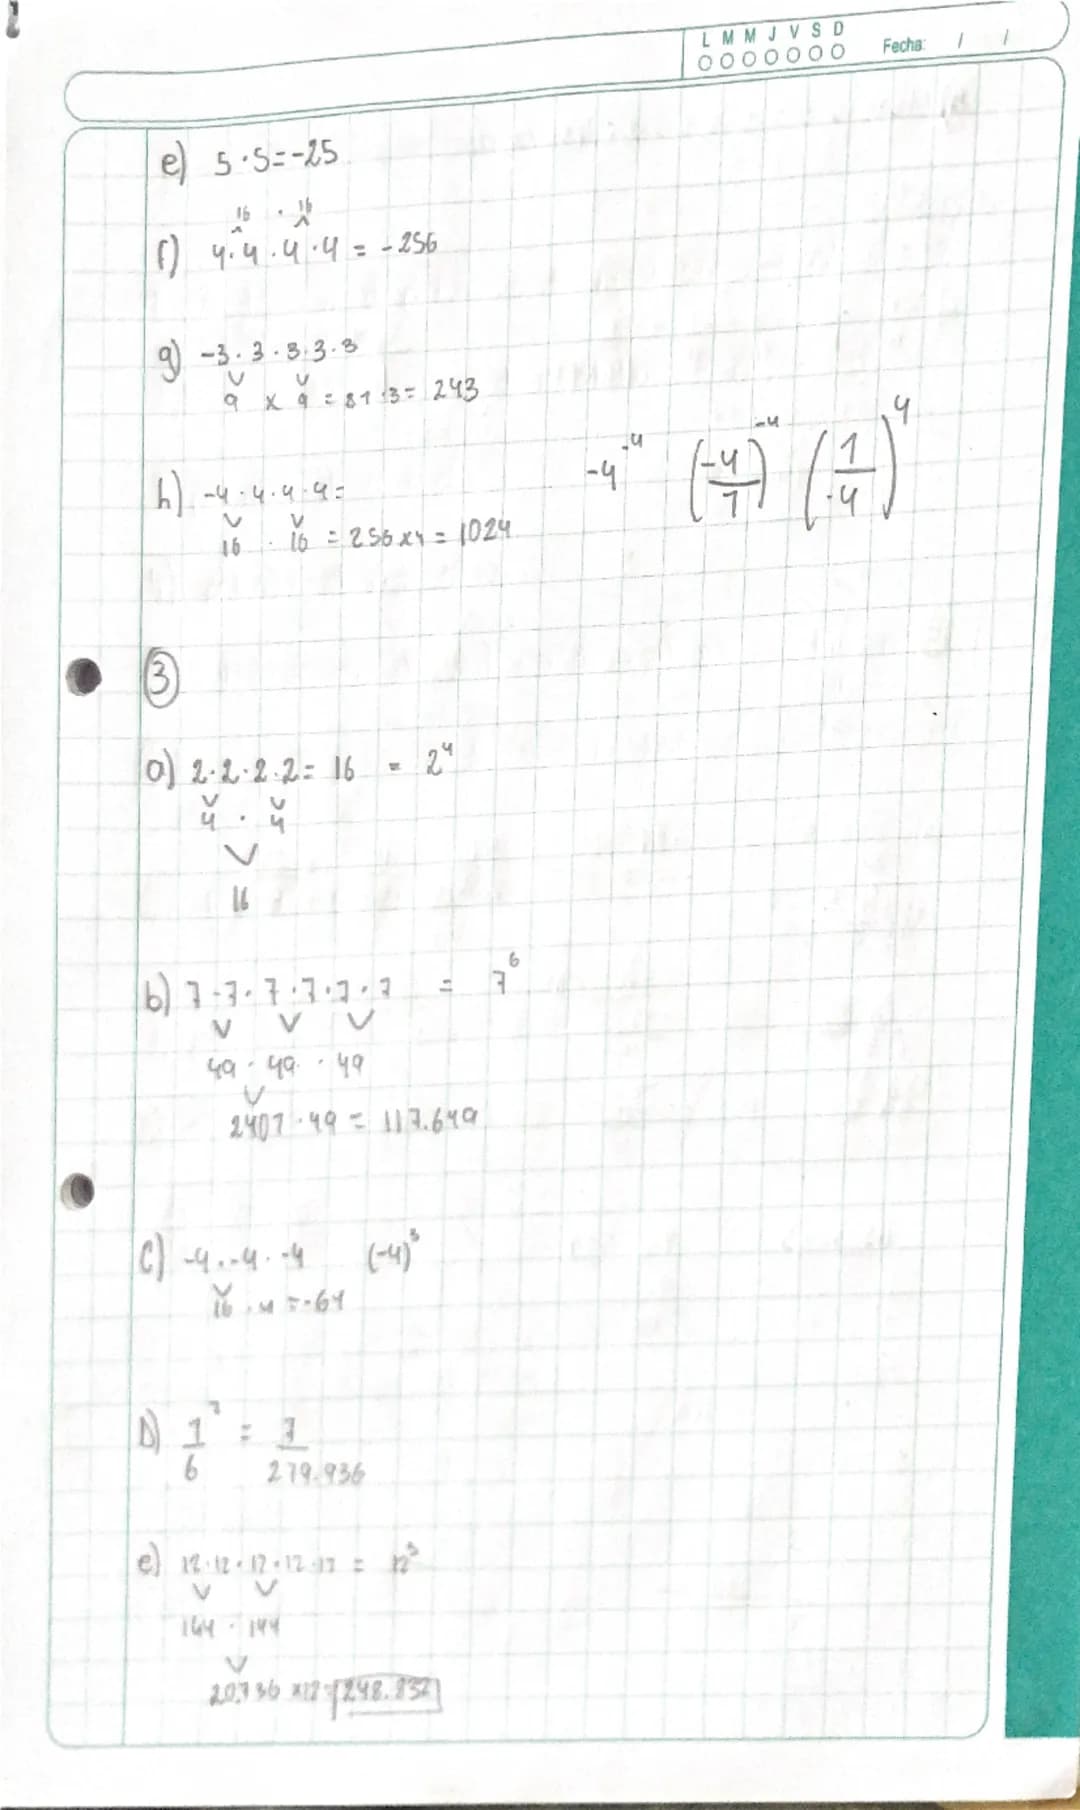 L M M J V S D
Fecha: / /
e) 5·5=-25
16 · 16
f) 4·4·4·4 = -256
g) -3·3·3·3·3
9 x 9 = 81·3= 243
h) -4·4·4·4=
16 · 16 = 256x4 = 1024
-4⁻⁴ (-4/1)⁻⁴ (1/-4)⁴
③
a) 2·2·2·2= 16 = 2⁴
4 · 4
16
b) 7·7·7·7·7·7 = 7⁶
49 · 49 · 49
2401·49 = 117.649
c) -4·-4·-4 (-4)³
16·4=-64
D) 1⁷/6 = 1/279.936
e) 12·12·12·12·12 = 12⁵
144 · 144
20.736 x12=248.832